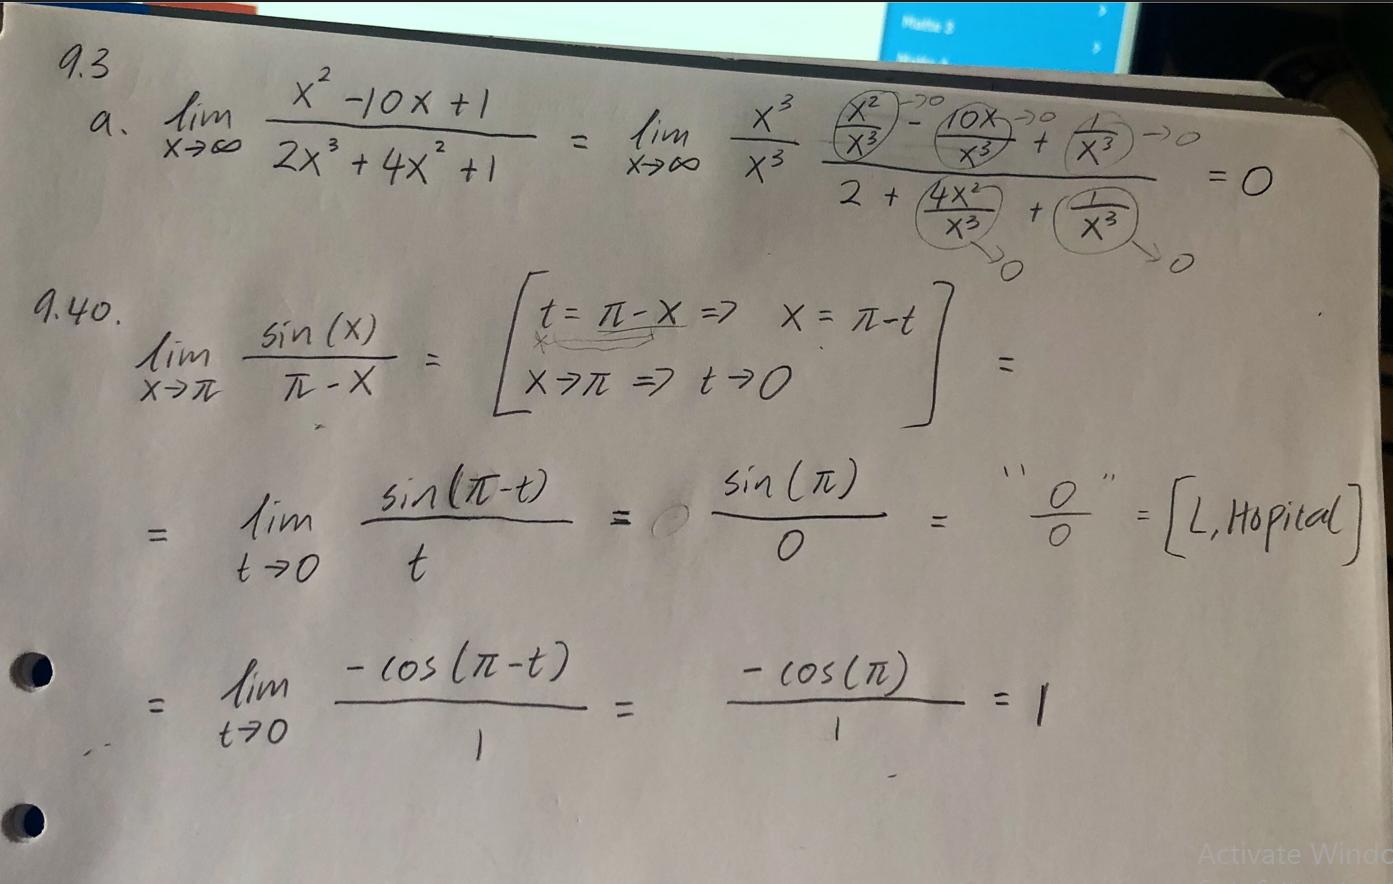 Maths 3
9.3
a. lim x→∞ (x² - 10x + 1)/(2x³ + 4x² + 1) = lim x→∞ x³/x³ (x²/x³ →0 - 10x/x³ →0 + 1/x³ →0)/(2 + 4x²/x³ →0 + 1/x³ →0) = 0
9.40.
lim x→π sin(x)/(π - x) = [t = π - x ⇒ x = π - t
x→π ⇒ t→0] =
= lim t→0 sin(π-t)/t = sin(π)/0 = "0/0" = [L,Hopital]
= lim t→0 -cos(π-t)/1 = -cos(π)/1 = 1